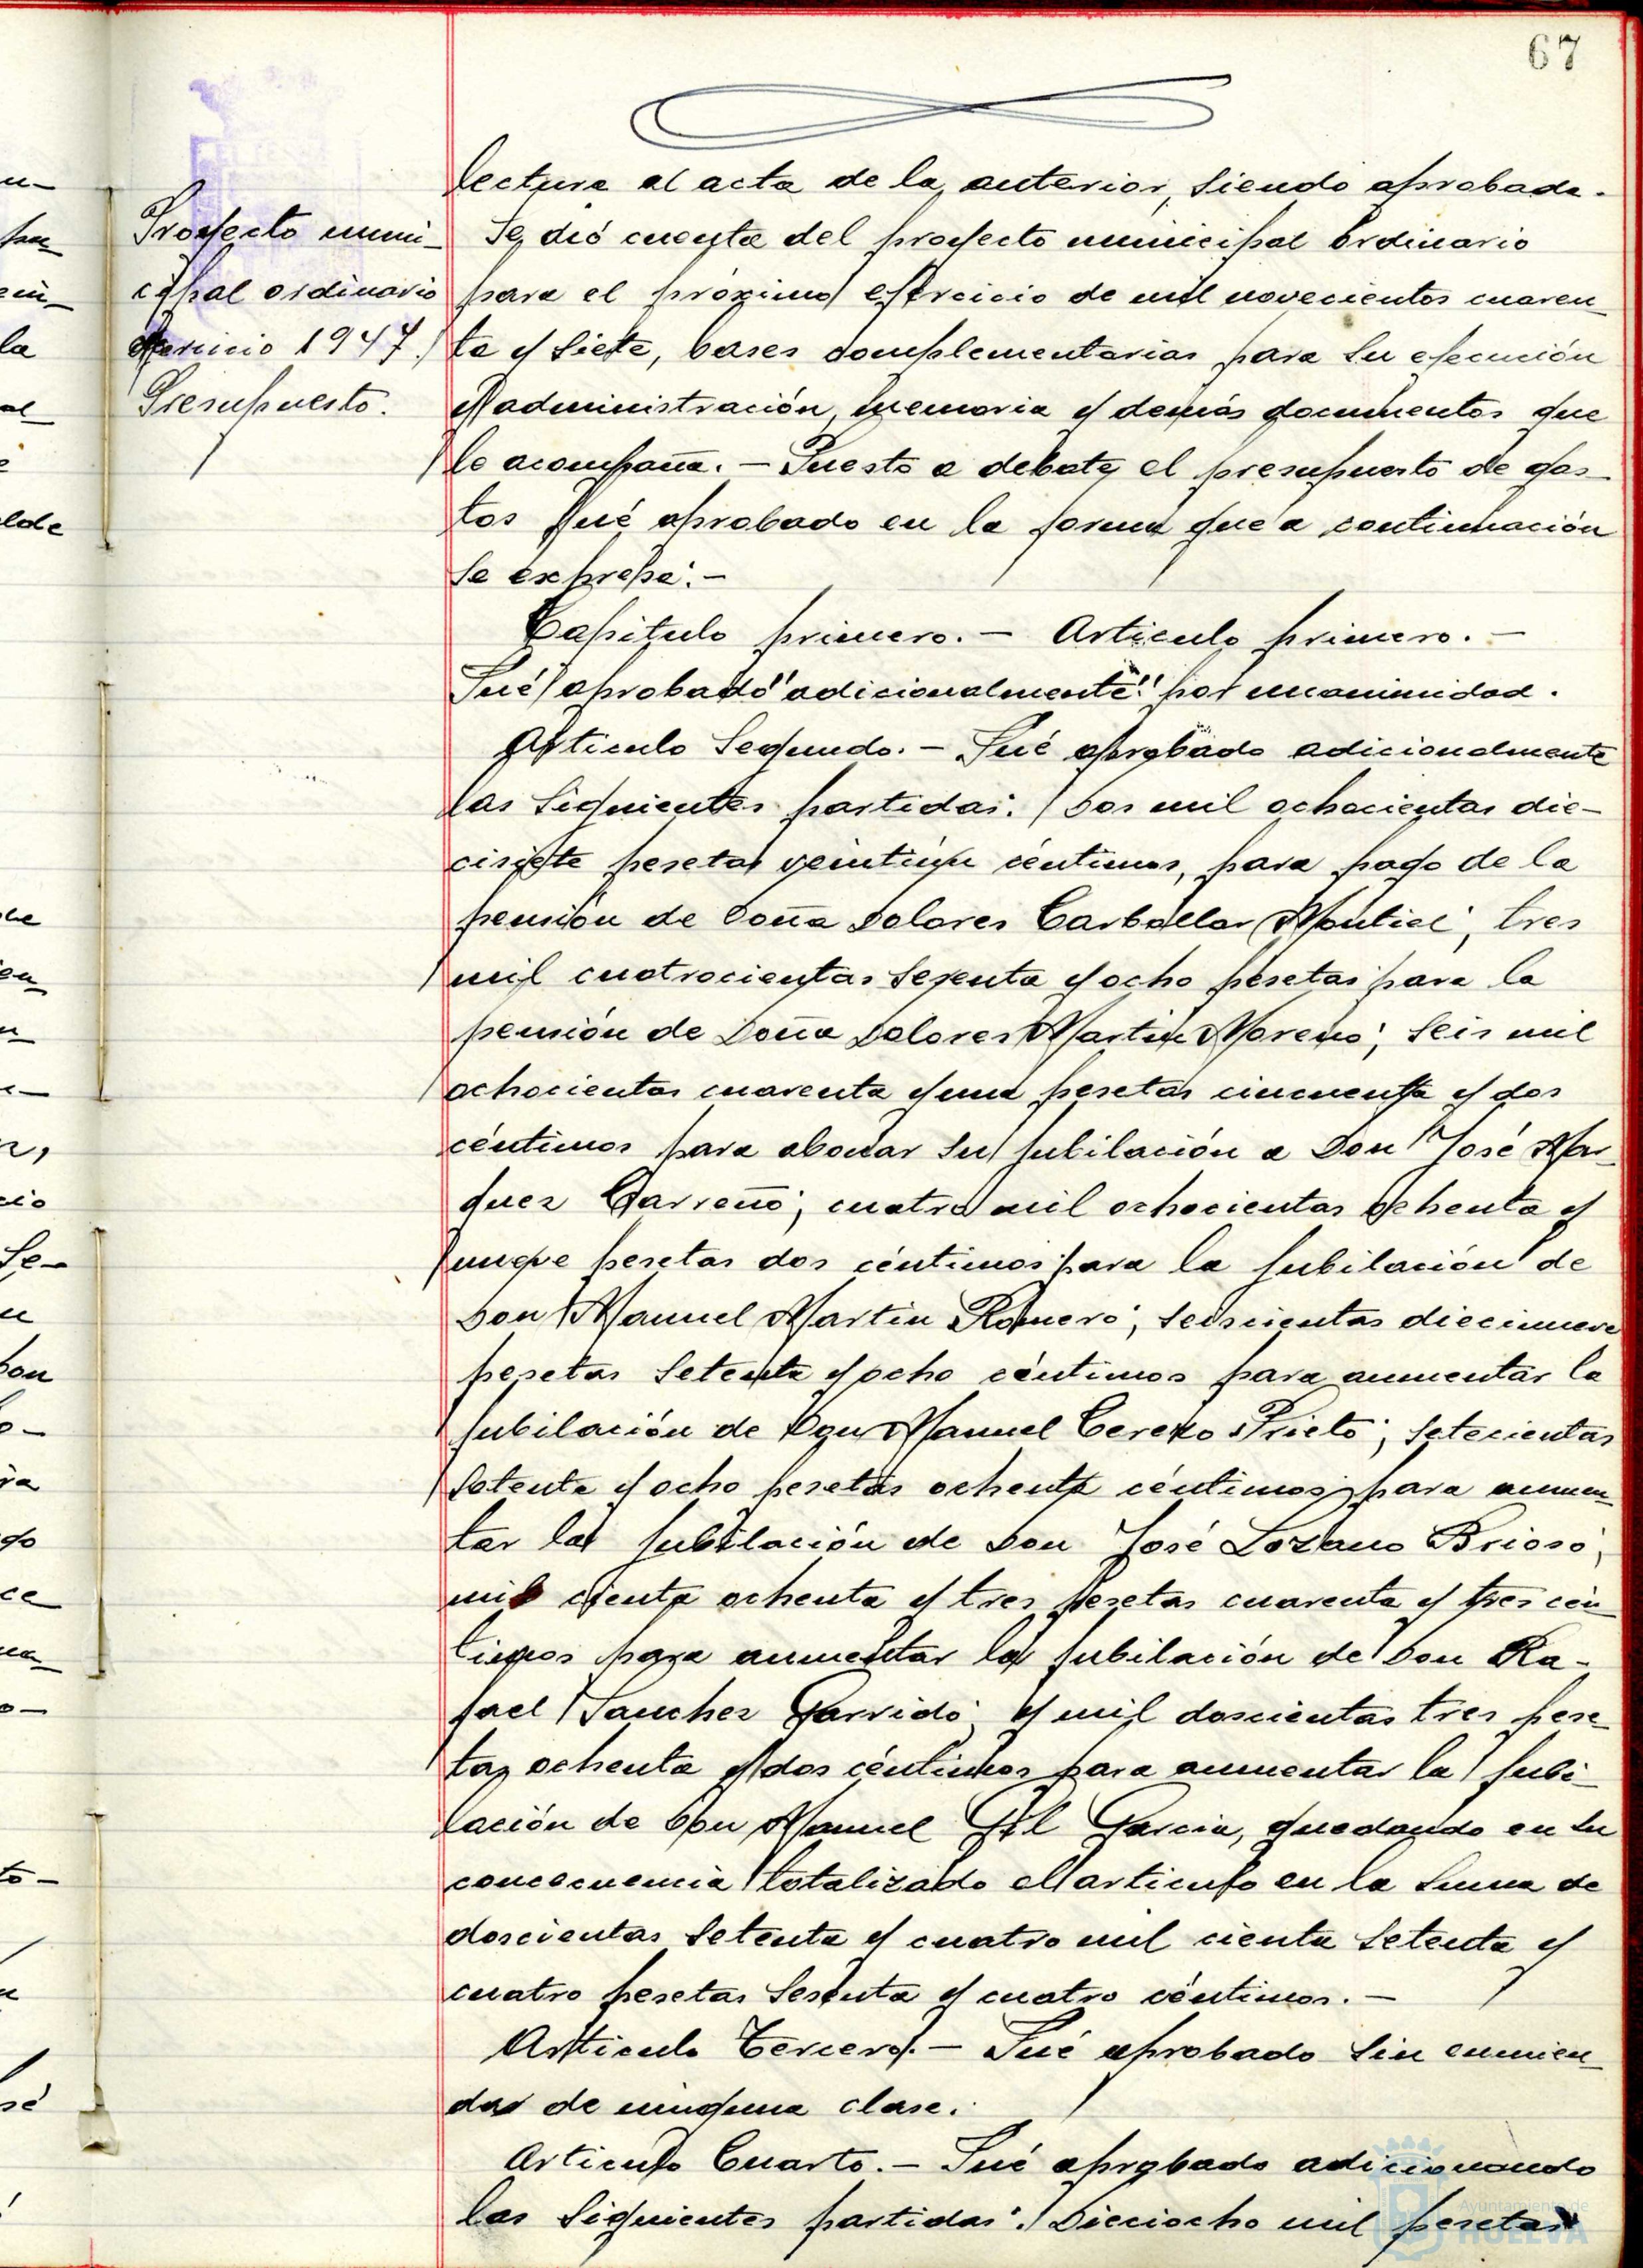 67
lectura al acta de la anterior, siendo aprobada.
Proyecto muni-
cipal ordinario
ejercicio 1947.
Presupuesto.
Se dió cuenta del proyecto municipal ordinario
para el próximo ejercicio de mil novecientos cuaren-
ta y siete, bases complementarias para su ejecución
y administración, memoria y demás documentos que
le acompaña. — Puesto a debate el presupuesto de gas-
tos fué aprobado en la forma que a continuación
se expresa: —
Capitulo primero. — Articulo primero. —
Fué aprobado "adicionalmente" por unanimidad.
Articulo Segundo. — Fué aprobado adicionalmente
las siguientes partidas: Dos mil ochocientas die-
cisiete pesetas veintiún céntimos, para pago de la
pensión de Doña Dolores Carballar Montiel; tres
mil cuatrocientas sesenta y ocho pesetas para la
pensión de Doña Dolores Martin Moreno; seis mil
ochocientas cuarenta y una pesetas cincuenta y dos
céntimos para abonar su jubilación a Don José Mar-
quez Carreño; cuatro mil ochocientas ochenta y
nueve pesetas dos céntimos para la jubilación de
Don Manuel Martin Romero; seiscientas diecinueve
pesetas setenta y ocho céntimos para aumentar la
jubilación de Don Manuel Cerezo Prieto; setecientas
setenta y ocho pesetas ochenta céntimos para aumen-
tar la jubilación de Don José Lozano Brioso;
mil cienta ochenta y tres pesetas cuarenta y tres cén-
timos para aumentar la jubilación de Don Ra-
fael Sanchez Garrido; y mil doscientas tres pese-
tas ochenta y dos céntimos para aumentar la jubi-
lación de Don Manuel Gil Garcia, quedando en su
concecuencia totalizado el articulo en la suma de
doscientas setenta y cuatro mil cienta setenta y
cuatro pesetas sesenta y cuatro céntimos. —
Articulo Tercero. — Fué aprobado sin enmien-
das de ninguna clase.
Articulo Cuarto. — Fué aprobado adicionando
las siguientes partidas: Dieciocho mil pesetas
Ayuntamiento de
HUELVA